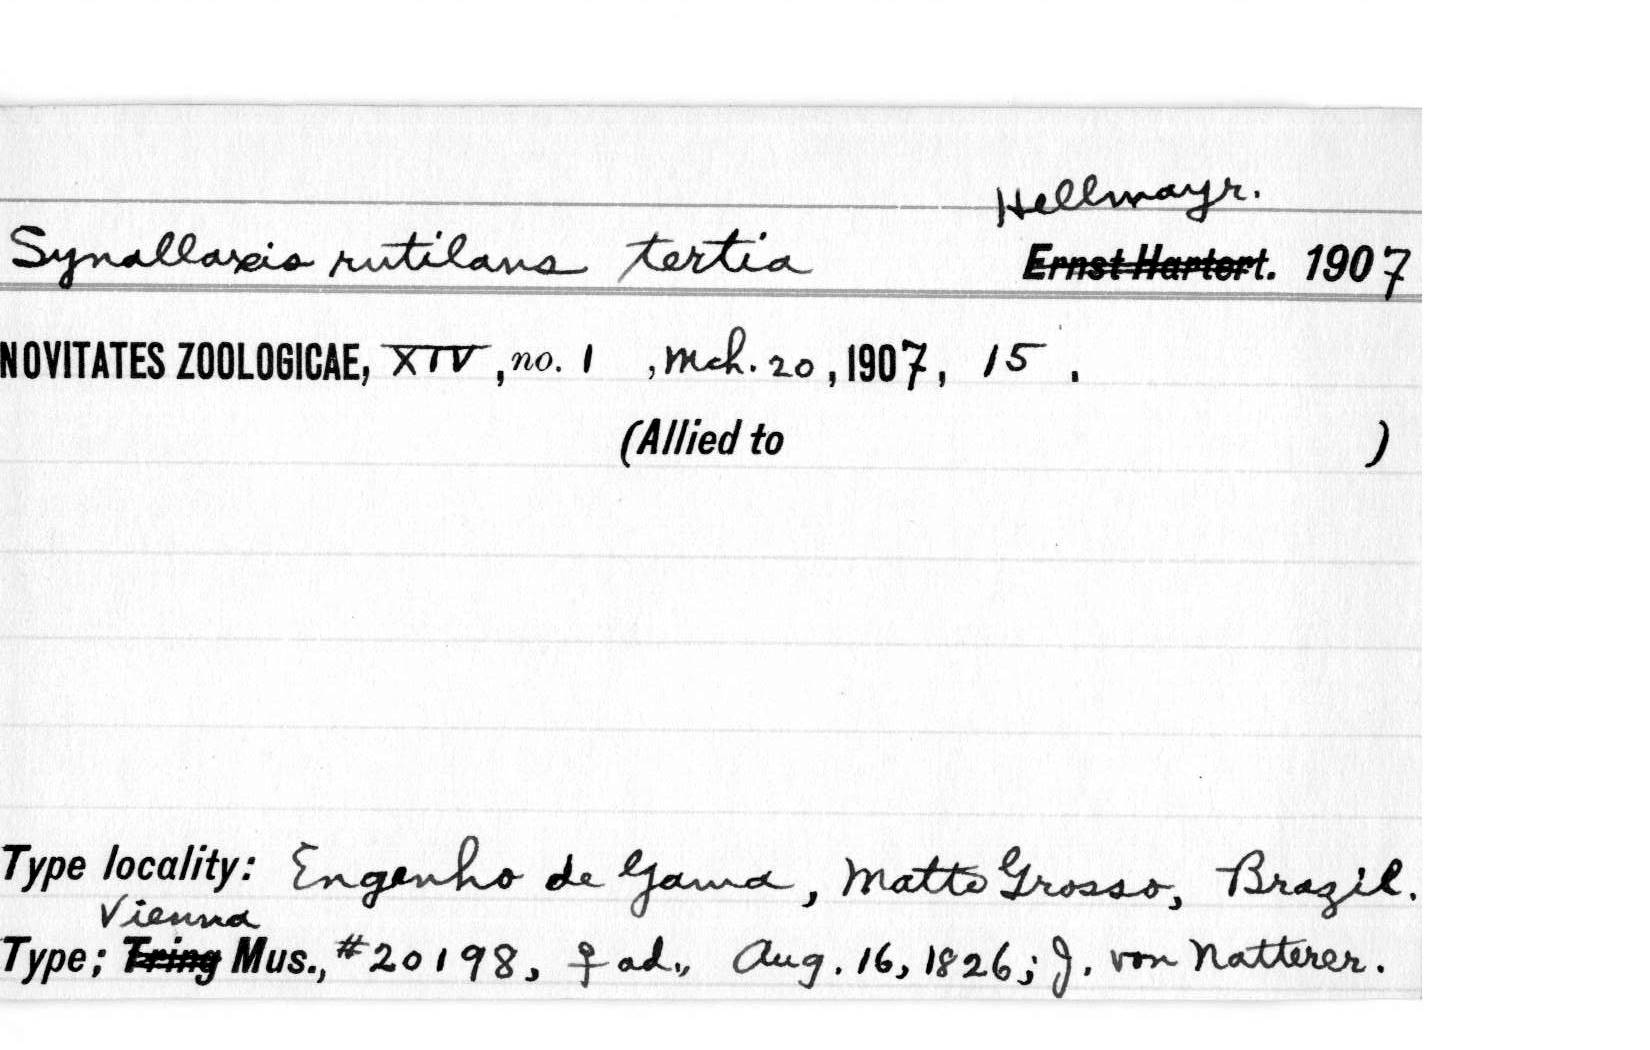 Hellmayr.
Synallaxis rutilans tertia Ernst Hartert. 1907
NOVITATES ZOOLOGICAE, XIV, no. 1, Mch. 20, 1907, 15.
(Allied to )
Type locality: Engenho do Gama, Matto Grosso, Brazil.
Vienna
Type; Tring Mus., #20198, ♀ ad., Aug. 16, 1826; J. von Natterer.